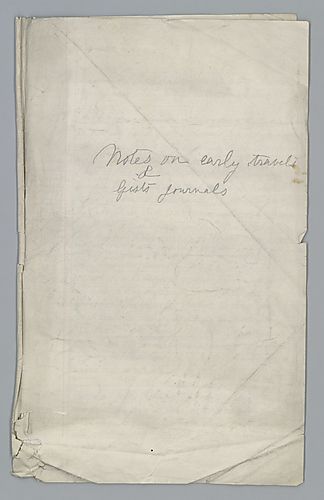 Notes on early travels
&
Gists Journals